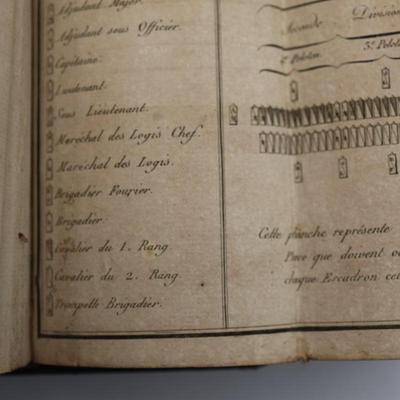 Adjudant Major.
Adjudant sous Officier.
Capitaine.
Lieutenant.
Sous Lieutenant.
Maréchal des Logis Chef.
Maréchal des Logis.
Brigadier Fourier.
Brigadier.
Cavalier du 1. Rang
Cavalier du 2. Rang
Trompette Brigadier.
Seconde Division
Peloton
3.e Peloton
Cette planche représente
Place que doivent
chaque Escadron